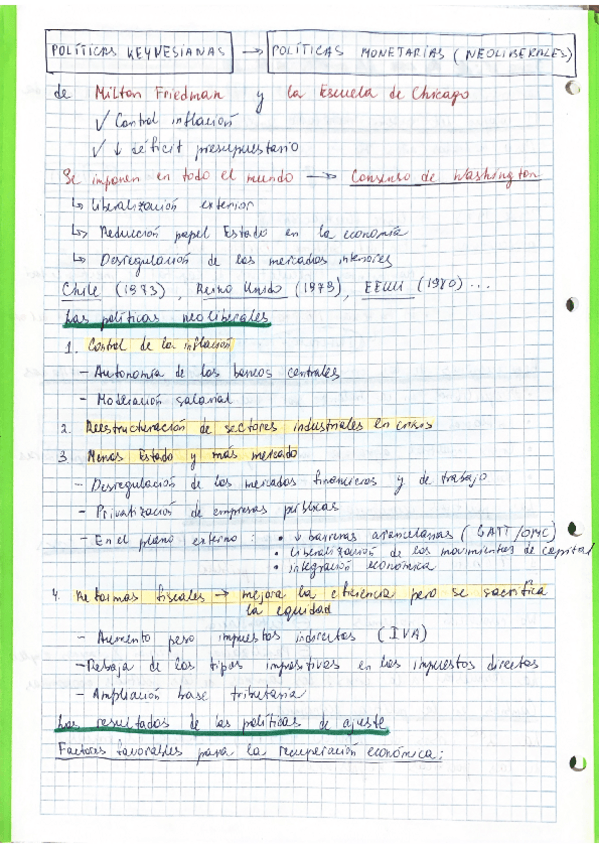 POLÍTICAS KEYNESIANAS → POLÍTICAS MONETARIAS (NEOLIBERALES)
de Milton Friedman y la Escuela de Chicago
✓ Control inflación
✓ ↓ déficit presupuestario
Se imponen en todo el mundo → Consenso de Washington
↳ Liberalización exterior
↳ Reducción papel Estado en la economía
↳ Desregulación de los mercados interiores
Chile (1973), Reino Unido (1979), EEUU (1980)...
Las políticas neoliberales
1. Control de la inflación
- Autonomía de los bancos centrales
- Moderación salarial
2. Reestructuración de sectores industriales en crisis
3. Menos Estado y más mercado
- Desregulación de los mercados financieros y de trabajo
- Privatización de empresas públicas
- En el plano externo: • ↓ barreras arancelarias (GATT/OMC)
• liberalización de los movimientos de capital
• integración económica
4. Reformas fiscales → mejora la eficiencia pero se sacrifica
la equidad
- Aumento peso impuestos indirectos (IVA)
- Rebaja de los tipos impositivos en los impuestos directos
- Ampliación base tributaria
Los resultados de las políticas de ajuste
Factores favorables para la recuperación económica: